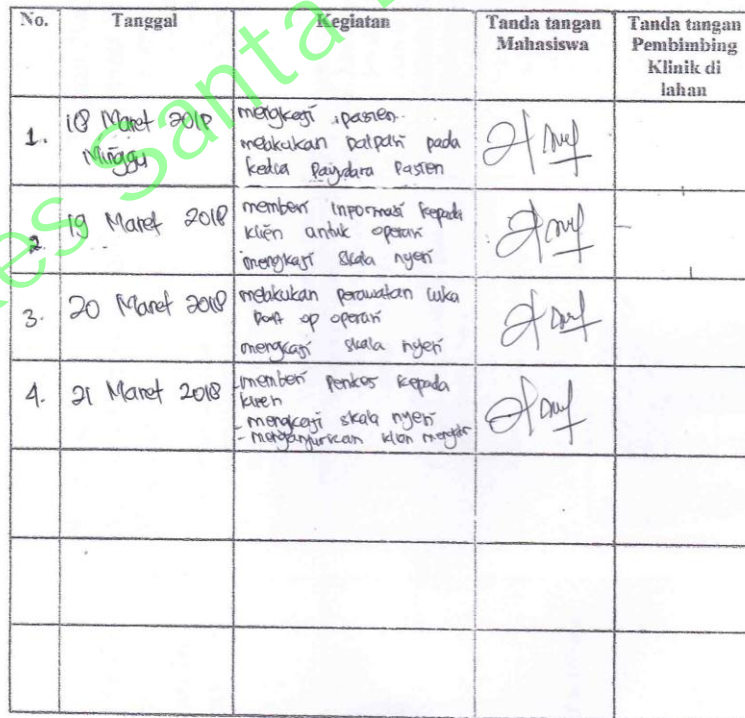 No. Tanggal Kegiatan Tanda tangan Tanda tangan
Mahasiswa Pembimbing
Klinik di
lahan
1. 18 Maret 2018 mengkaji pasien
Minggu melakukan palpasi pada
kedua Payudara Pasien
2. 19 Maret 2018 memberi informasi kepada
klien untuk operasi
mengkaji skala nyeri
3. 20 Maret 2018 melakukan perawatan luka
post op operasi
mengkaji skala nyeri
4. 21 Maret 2018 - memberi Penkes kepada
klien
- mengkaji skala nyeri
- menganjurkan klien
Santa